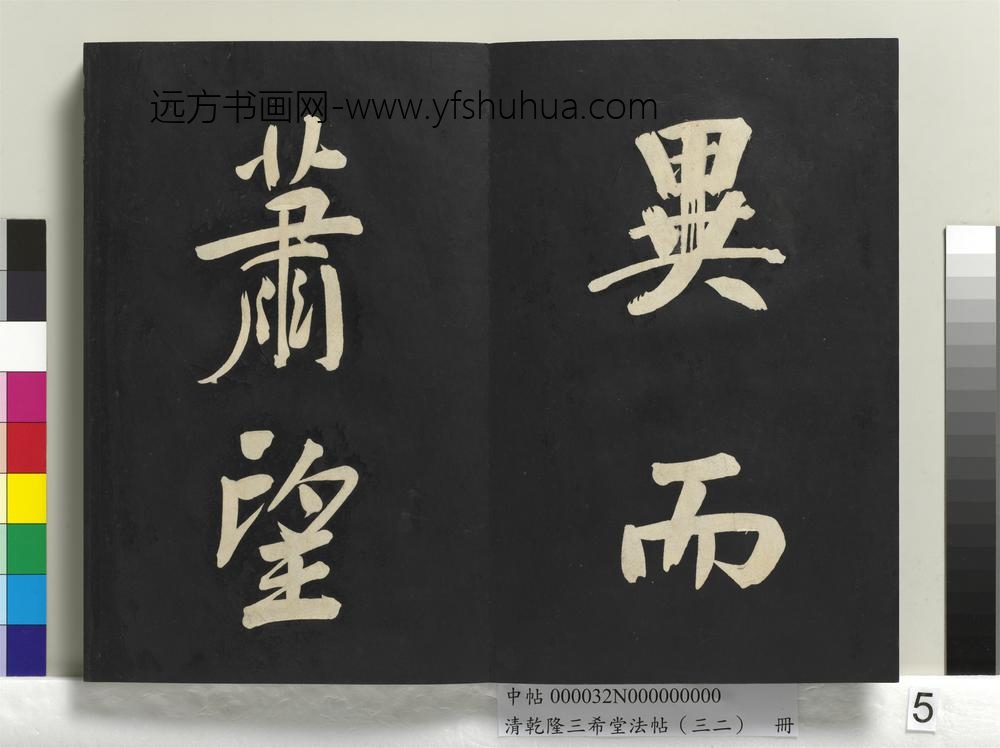 远方书画网-www.yfshuhua.com
異而
蕭望
中帖 000032N000000000
清乾隆三希堂法帖（三二） 冊
5